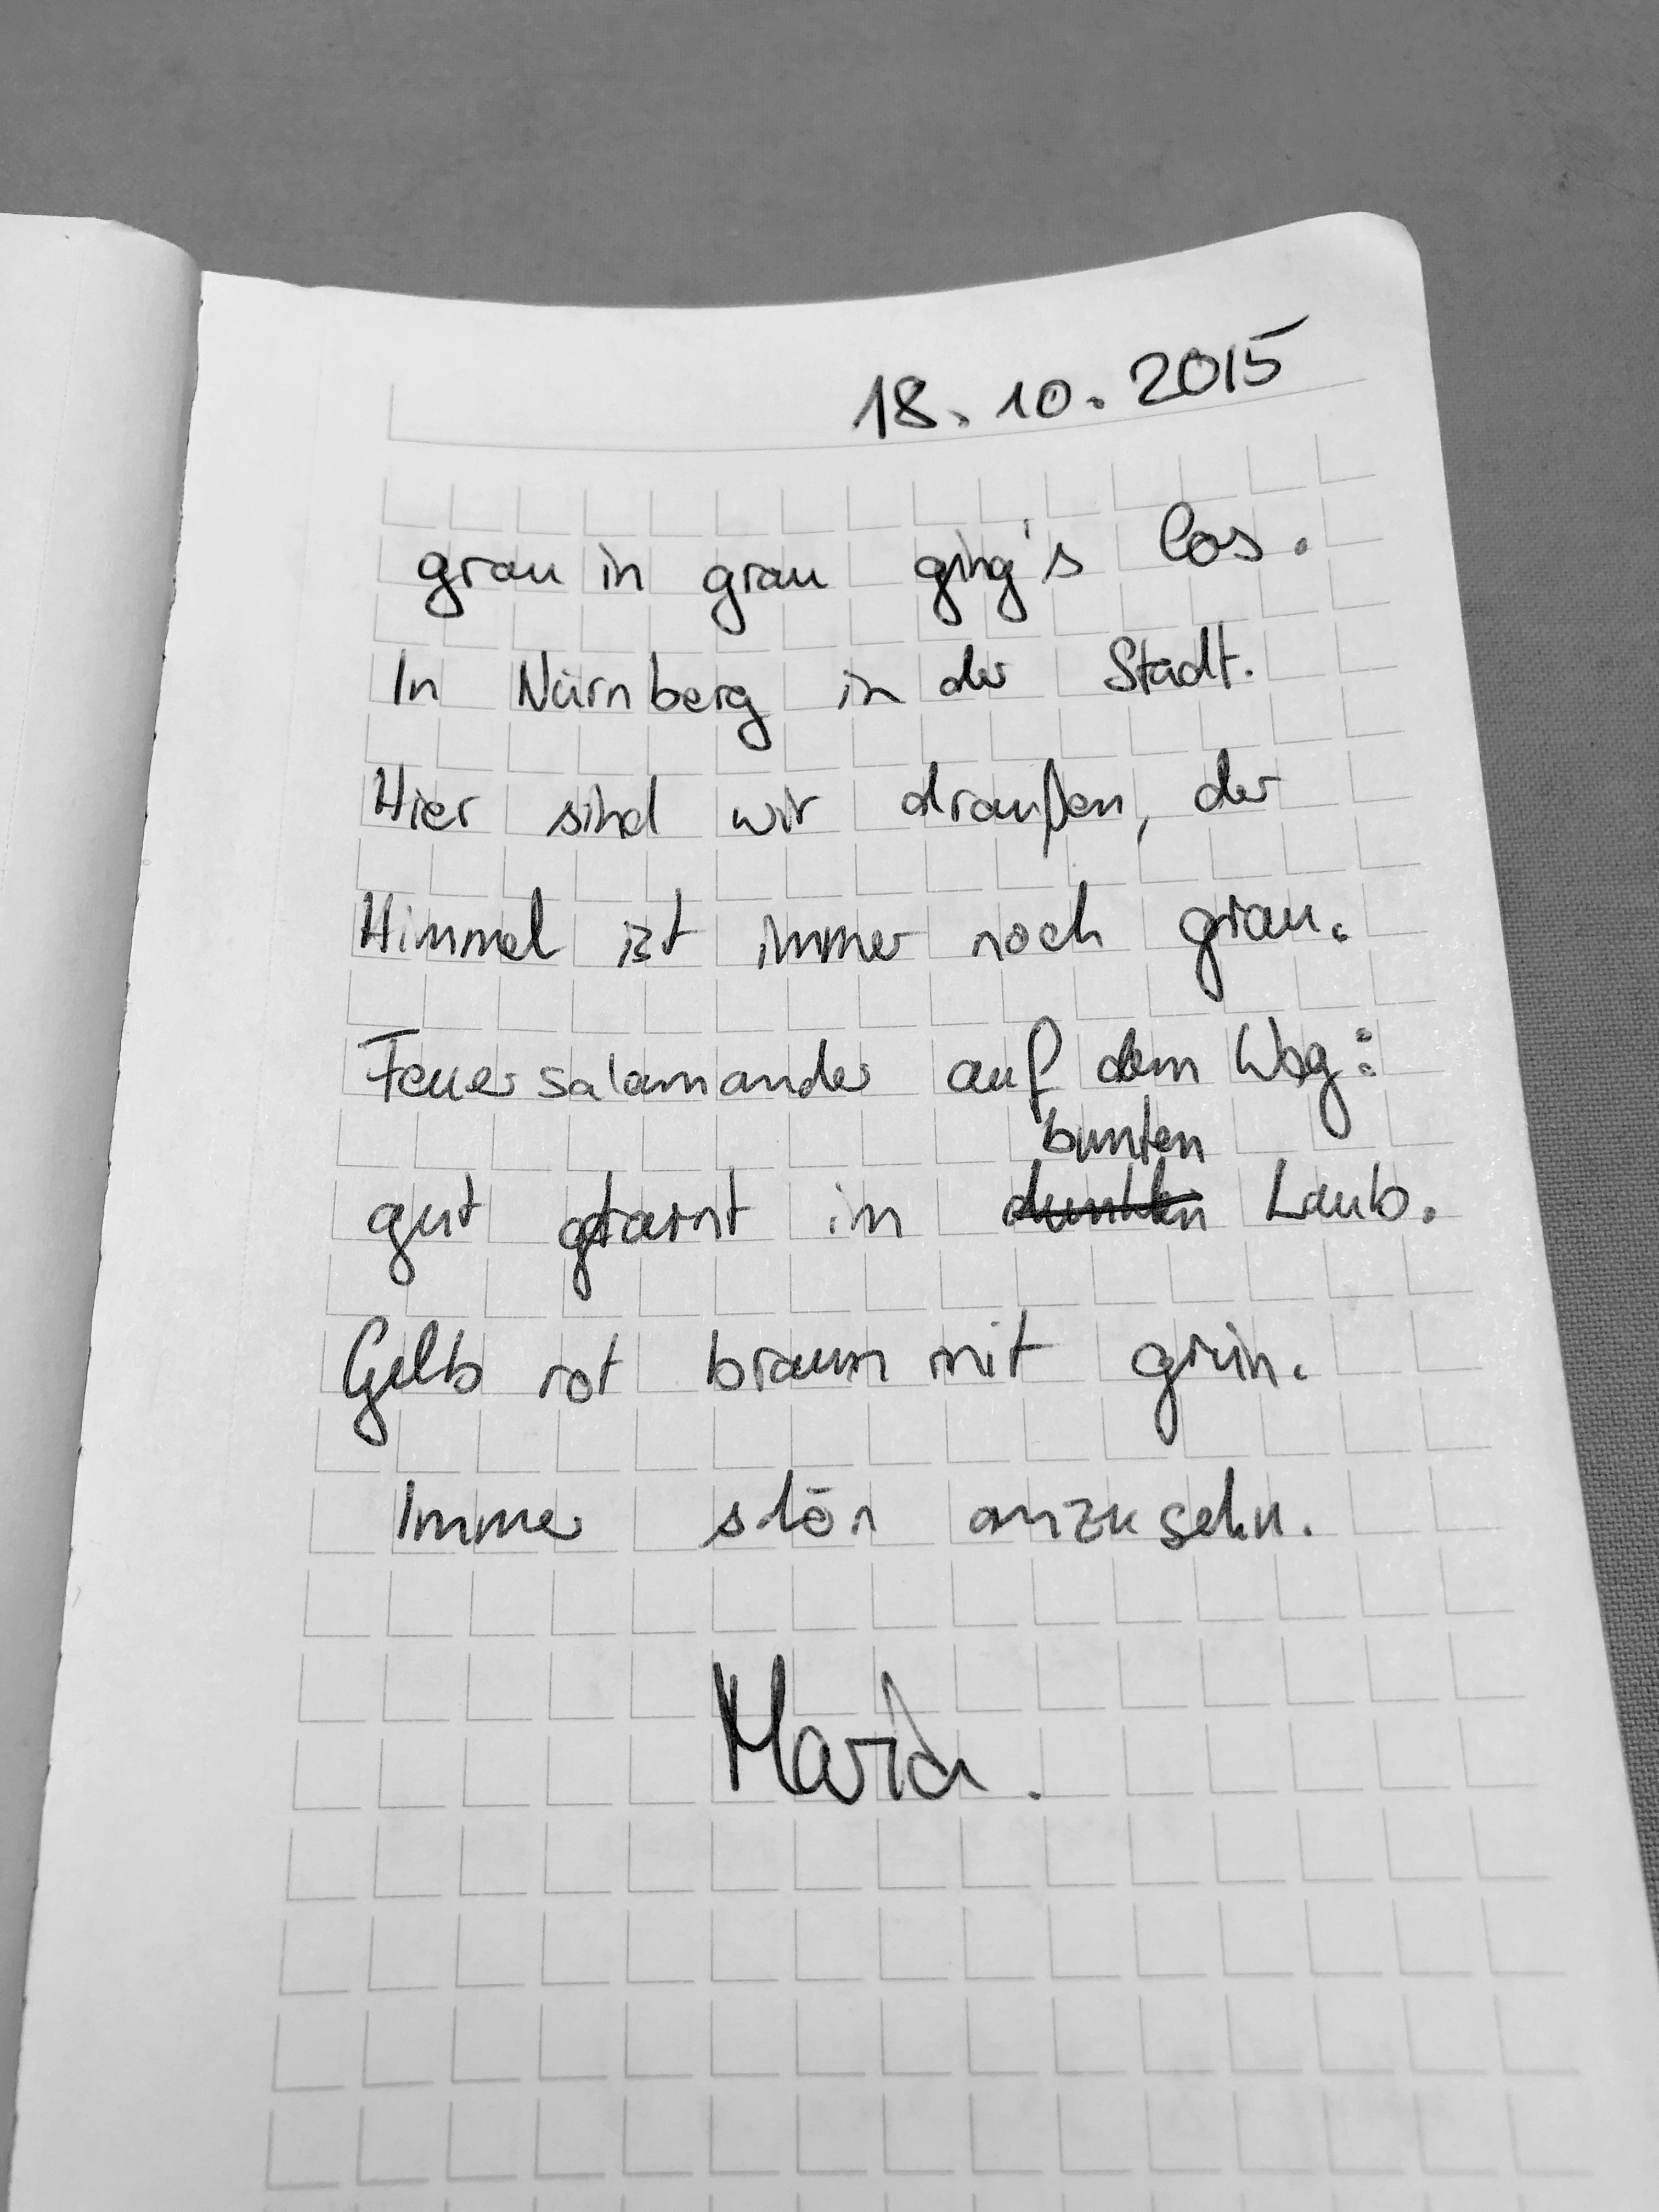 18.10.2015
grau in grau ging's los.
In Nürnberg in der Stadt.
Hier sind wir draußen, der
Himmel ist immer noch grau.
Feuersalamander auf dem Weg:
bunten
gut getarnt im dunklen Laub.
Gelb rot braun mit grün.
Immer schön anzusehn.
Maria.